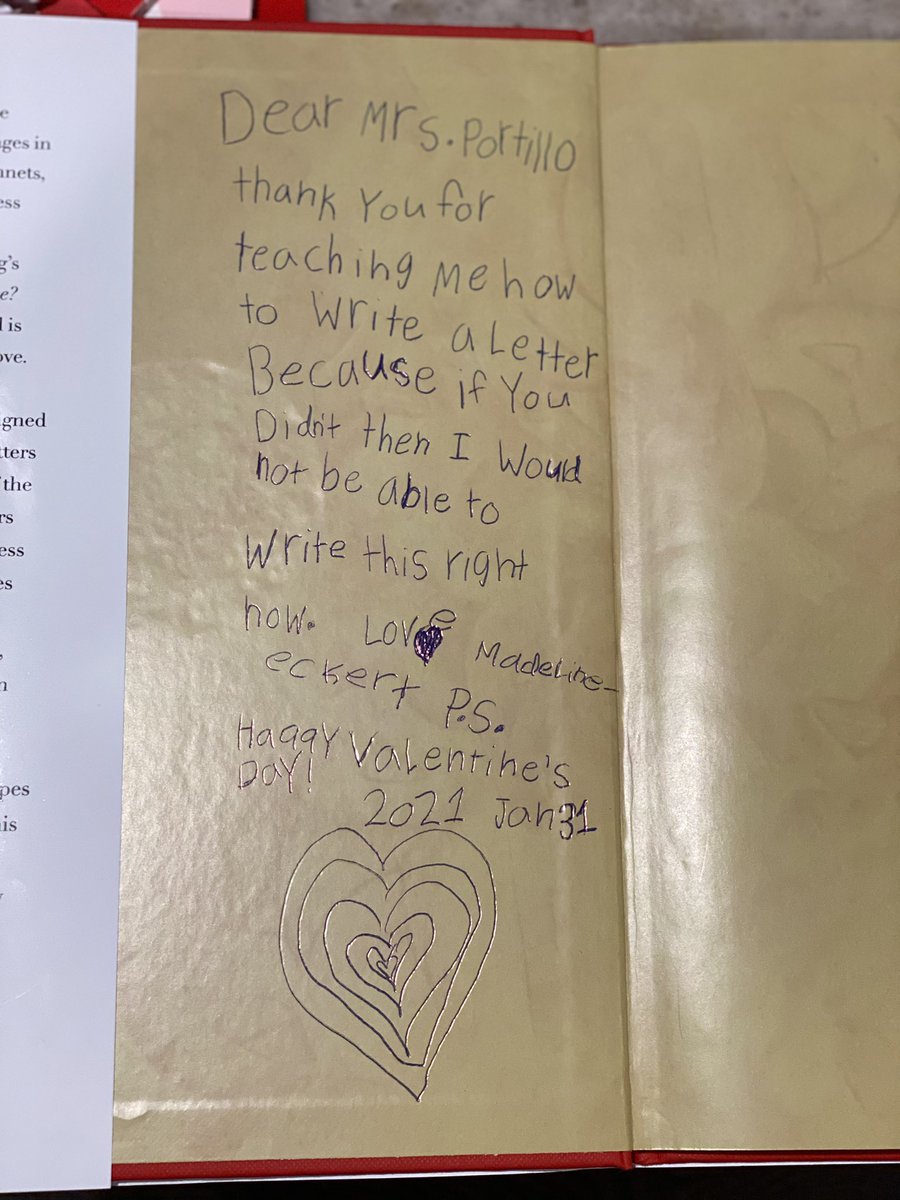 e
ges in
nnets,
ess
g's
e?
l is
ove.
igned
tters
f the
rs
ess
es
,
n
pes
is
y
Dear Mrs. Portillo
thank You for
teaching Me how
to Write a Letter
Because if You
Didn't then I Would
not be able to
Write this right
now. Love Madeline-
eckert P.S.
Haqqy Valentine's
DaY!
2021 Jan 31